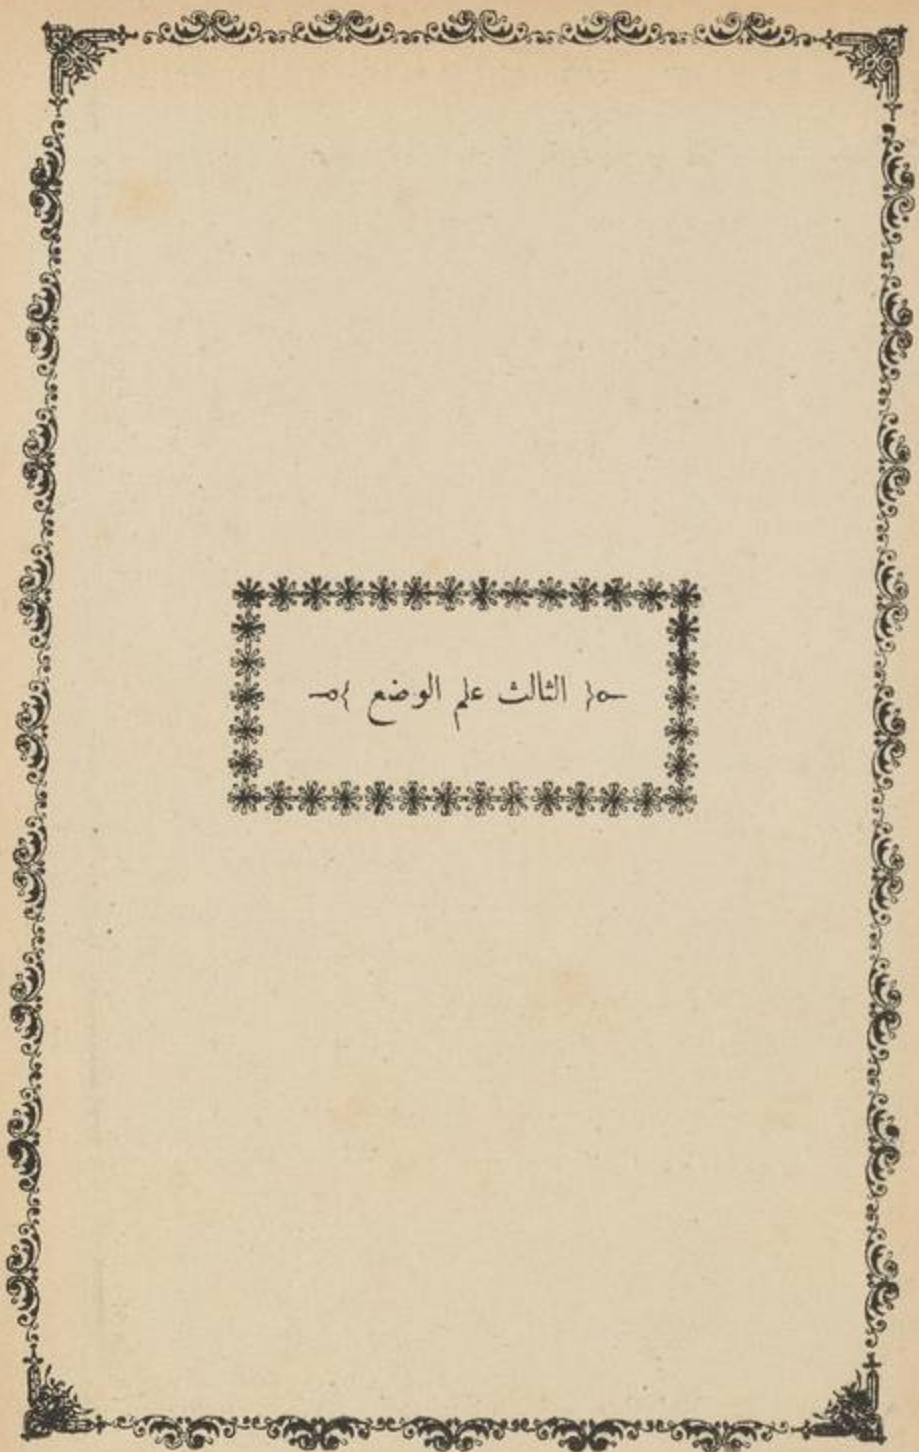 الثالث علم الوضع